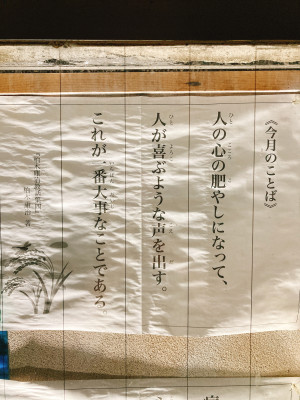 《今月のことば》
人の心の肥やしになって、
人が喜ぶような声を出す。
これが一番大事なことであろ